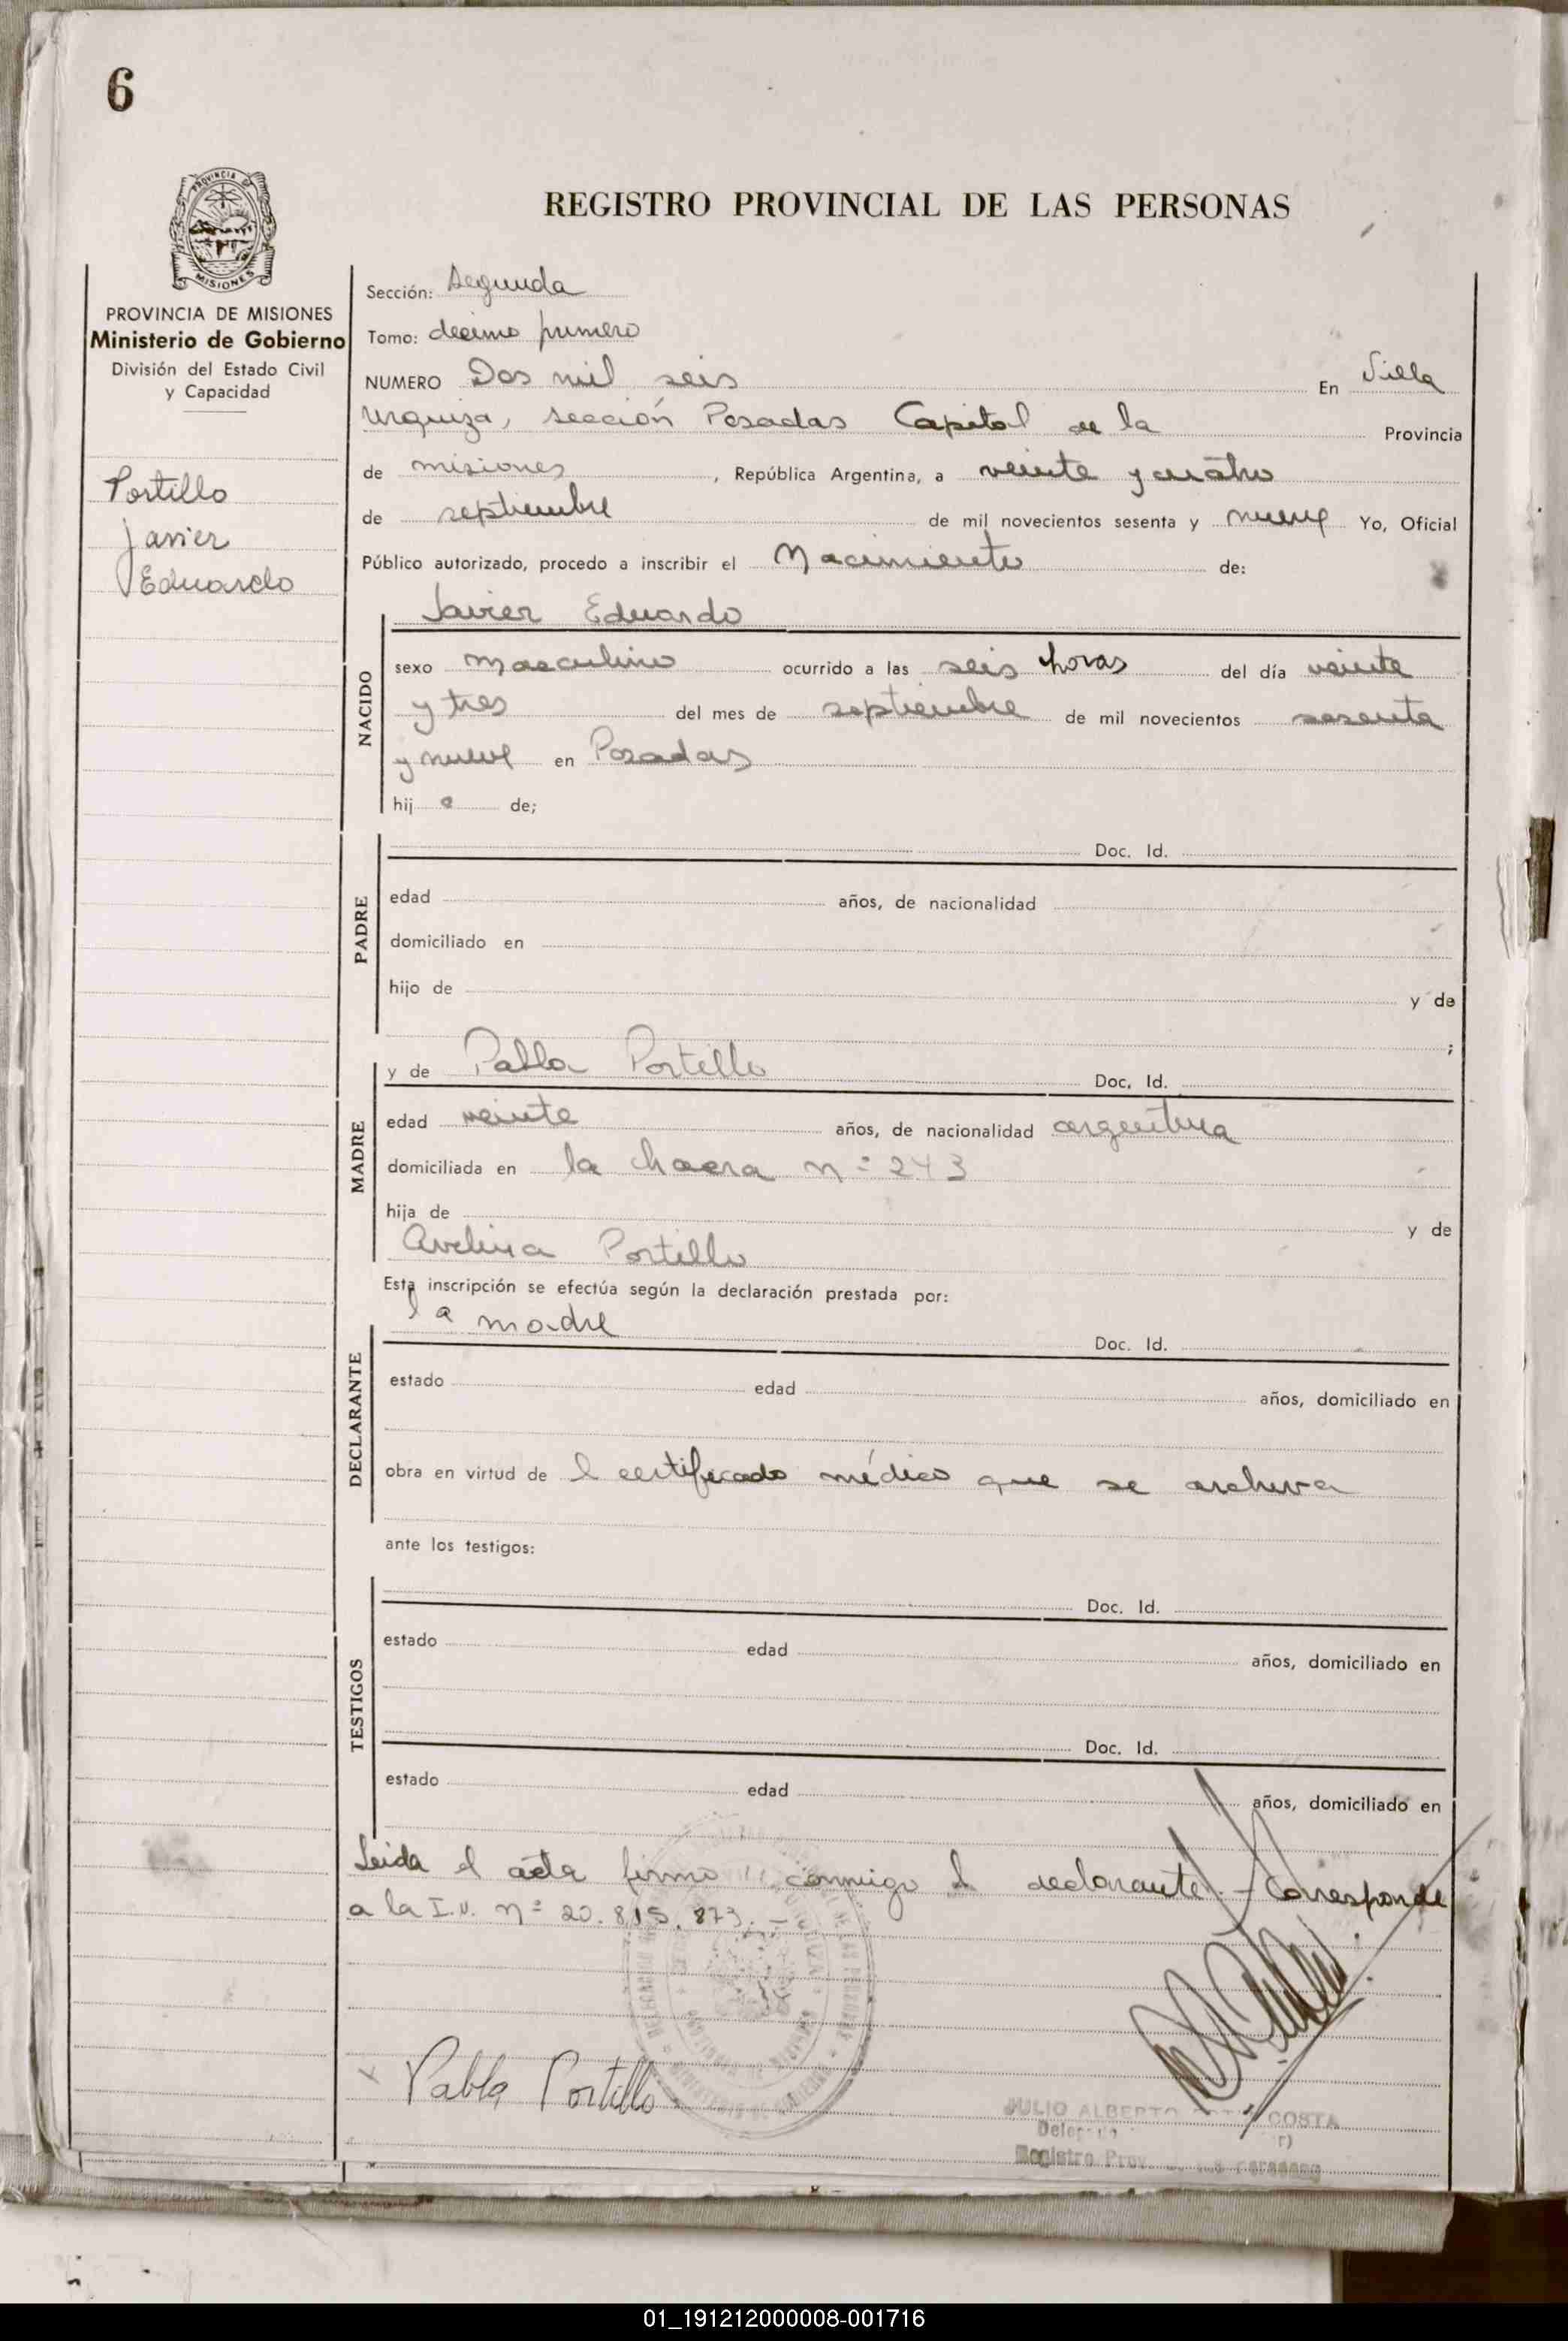 6
PROVINCIA DE
MISIONES
REGISTRO PROVINCIAL DE LAS PERSONAS
PROVINCIA DE MISIONES
Ministerio de Gobierno
División del Estado Civil
y Capacidad
Portillo
Javier
Eduardo
Sección: Segunda
Tomo: decimo primero
NUMERO Dos mil seis En Villa
Urquiza, sección Posadas Capital de la Provincia
de misiones, República Argentina, a veinte y cuatro
de septiembre de mil novecientos sesenta y nueve Yo, Oficial
Público autorizado, procedo a inscribir el Nacimiento de:
NACIDO
Javier Eduardo
sexo masculino ocurrido a las seis horas del día veinte
y tres del mes de septiembre de mil novecientos sesenta
y nueve en Posadas
hij o de;
PADRE
Doc. Id.
edad años, de nacionalidad
domiciliado en
hijo de y de
;
MADRE
y de Pabla Portillo Doc. Id.
edad veinte años, de nacionalidad argentina
domiciliada en la chacra nº 243
hija de y de
Avelina Portillo
Esta inscripción se efectúa según la declaración prestada por:
DECLARANTE
la madre Doc. Id.
estado edad años, domiciliado en
obra en virtud de l certificado médico que se archiva
ante los testigos:
TESTIGOS
Doc. Id.
estado edad años, domiciliado en
Doc. Id.
estado edad años, domiciliado en
Leida el acta firma conmigo el declarante - Corresponde
a la I.N. nº 20.815.873.-
Pabla Portillo
JULIO ALBERTO COSTA
Registro Prov.
01_191212000008-001716